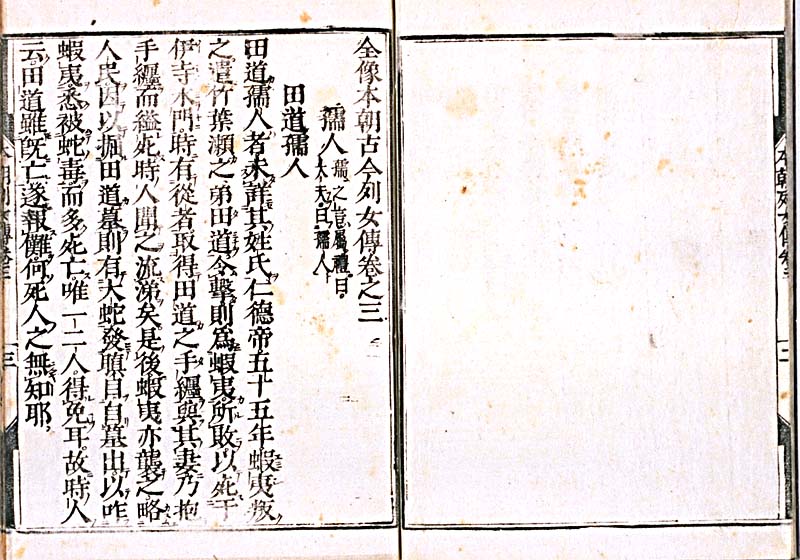 全像本朝古今列女傳卷之三
孺人 孺之言屬禮曰
大夫曰孺人
田道孺人
田道孺人者未詳其姓氏仁德帝五十五年蝦夷叛
之遣竹葉瀬之弟田道令擊則爲蝦夷所敗以死于
伊寺水門時有從者取得田道之手纏與其妻乃抱
手纏而縊死時人聞之流涕矣是後蝦夷亦襲之略
人民因以掘田道墓則有大蛇發瞋目自墓出以咋
蝦夷悉被蛇毒而多死亡唯一二人得免耳故時人
云田道雖既亡遂報讎何死人之無知耶